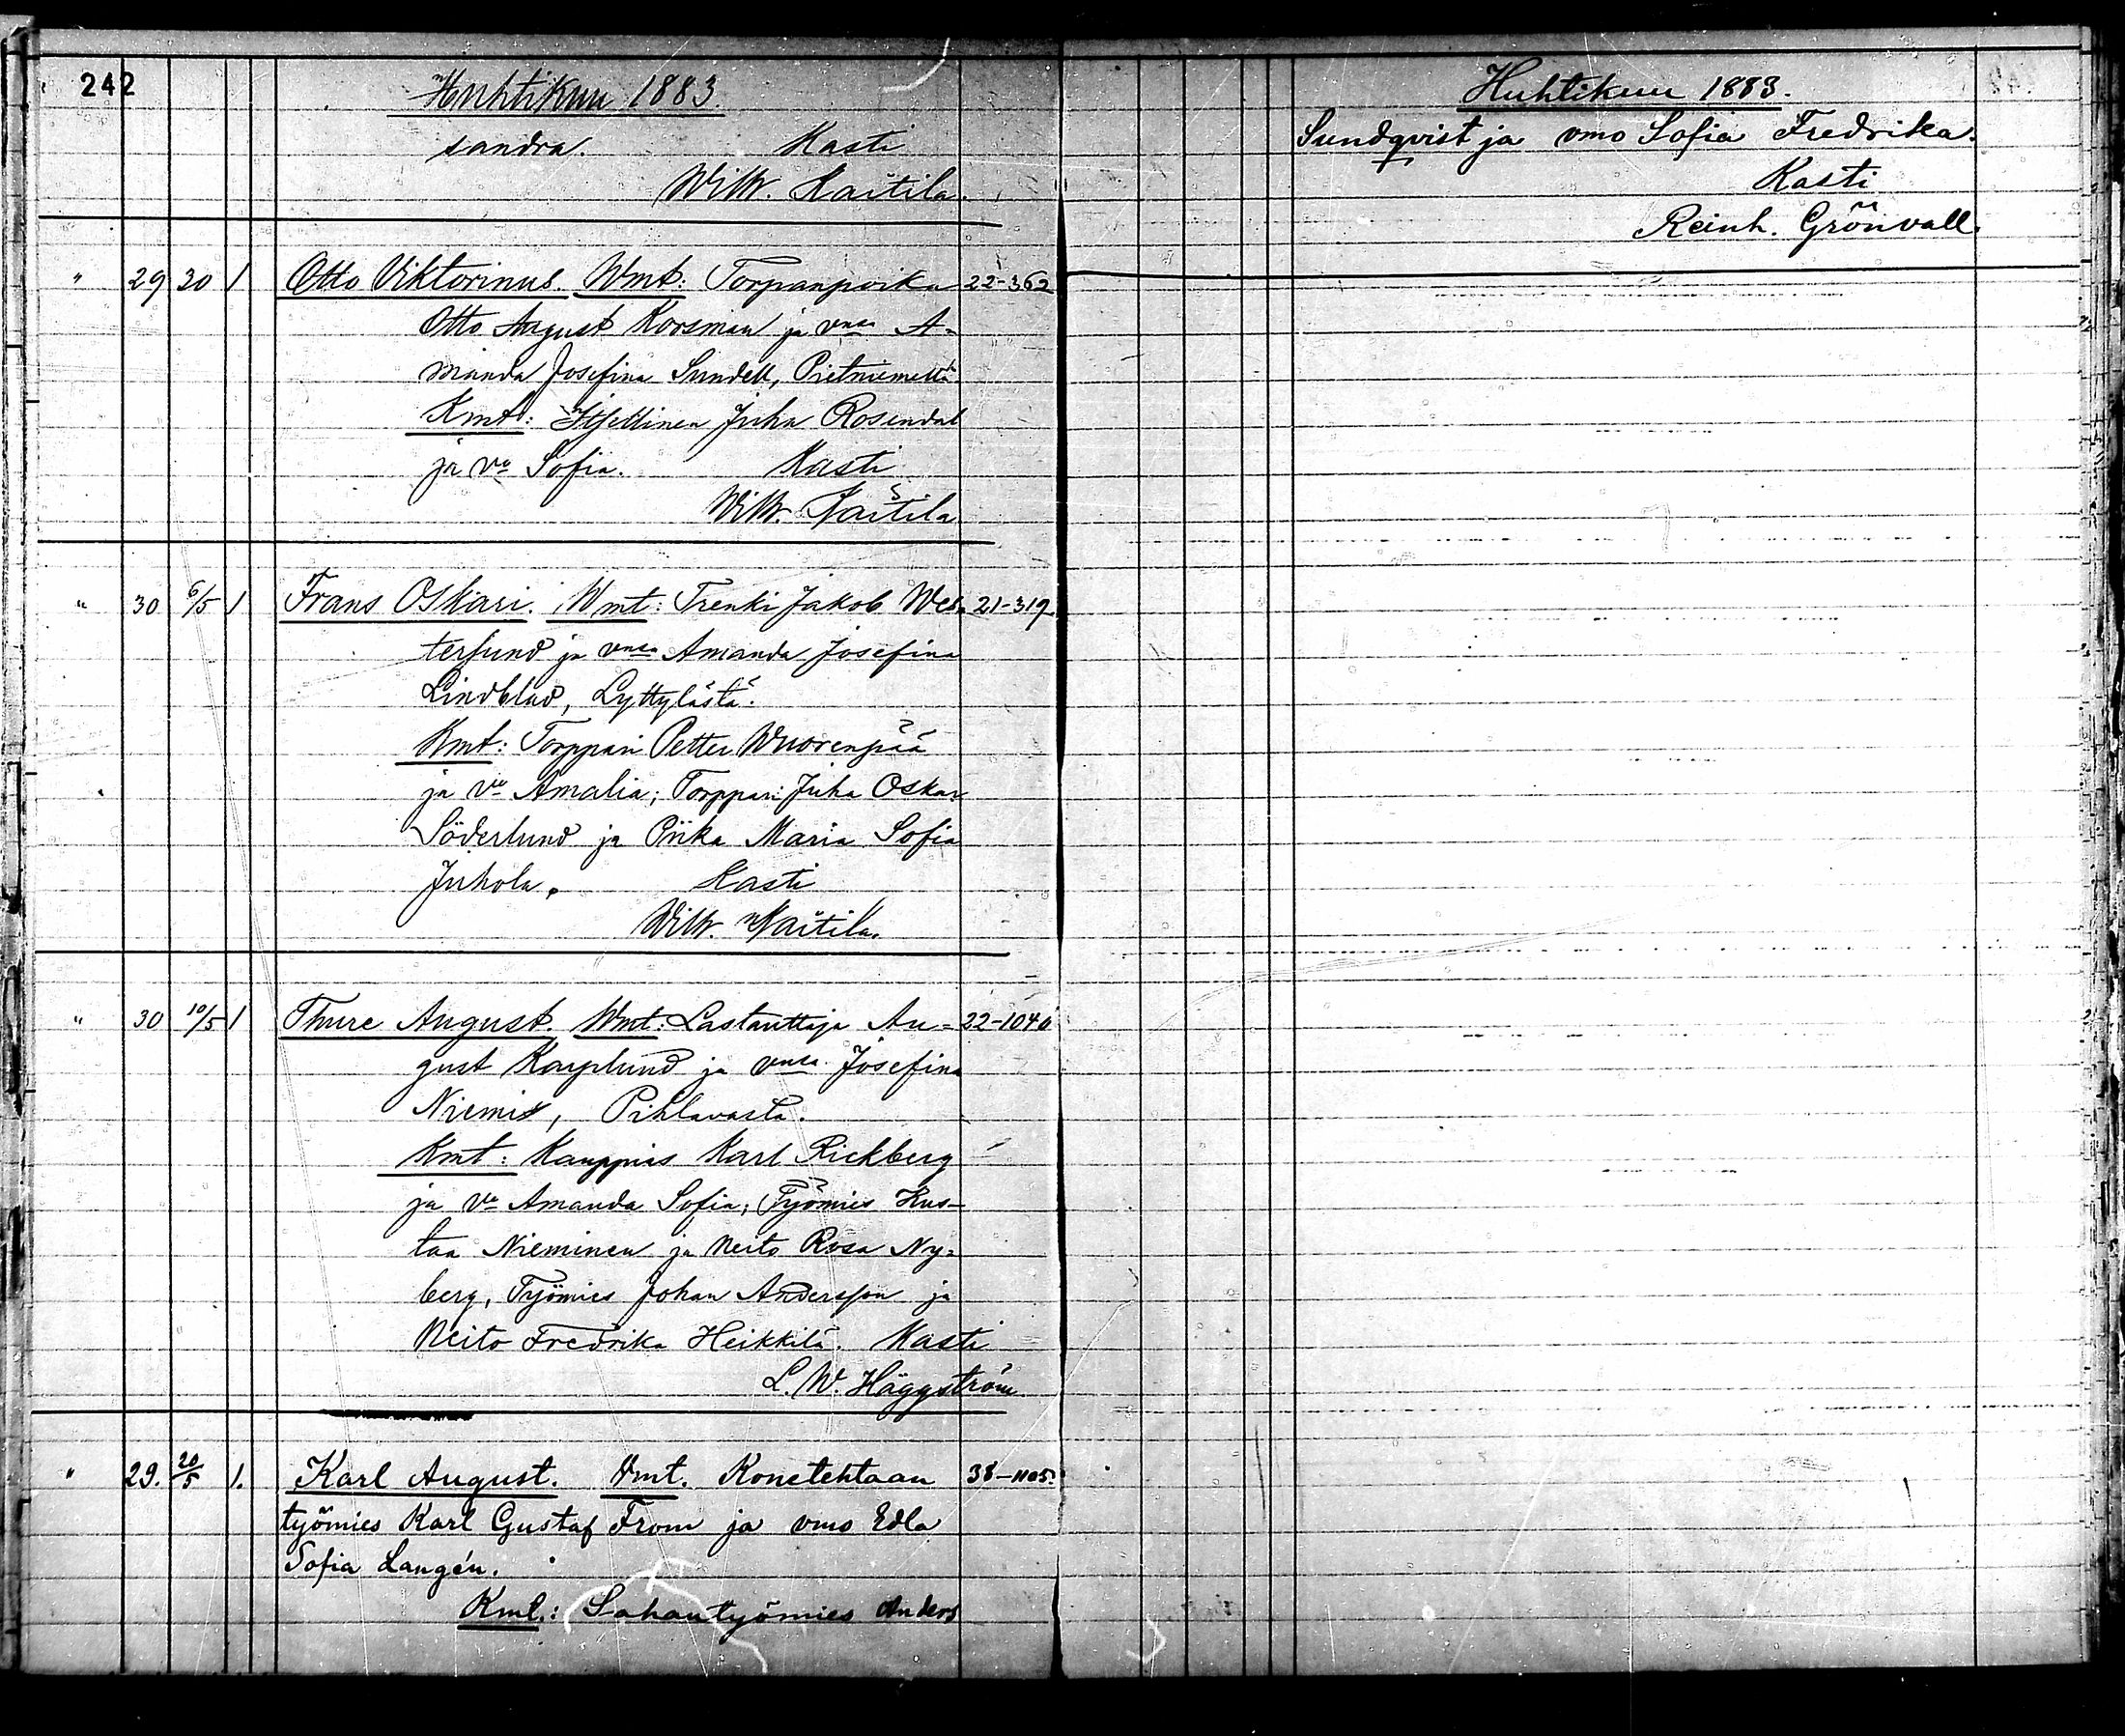 242
Huhtikuu 1883.
sandra. Kasti
Wilh. Kaitila.
" 29 30 1 Otto Viktorinus. Wmt: Torpanpoika 22-362
Otto August Korsman ja vmsa A-
manda Josefina Sundell, Pietniemeltä
Kmt: Itsellinen Juha Rosendal
ja vo Sofia. Kasti
Wilh. Kaitila
" 30 6/5 1 Frans Oskari. Wmt: Trenki Jakob Wes- 21-319.
terlund ja vmsa Amanda Josefina
Lindblad, Lyttylästä.
Kmt: Torppari Petter Wuorenpää
ja vo Amalia; Torppari Juha Oskar
Söderlund ja Piika Maria Sofia
Juhola. Kasti
Wilh. Kaitila.
" 30 10/5 1 Thure August. Wmt: Lastauttaja Au- 22-1040
gust Karplund ja vmsa Josefina
Niemis, Pihlavasta.
Kmt: Kauppias Karl Rickberg
ja vo Amanda Sofia; Työmies Kus-
taa Nieminen ja neito Rosa Ny-
berg, Työmies Johan Andersson ja
Neito Fredrika Heikkilä. Kasti
L. W. Häggström.
" 29. 20/5 1. Karl August. Vmt. Konetehtaan 38-1105.
työmies Karl Gustaf From ja vmo Edla
Sofia Langén.
Kmt.: Sahantyömies Anders
Huhtikuu 1883.
Sundqvist ja vmo Sofia Fredrika.
Kasti
Reinh. Grönvall.